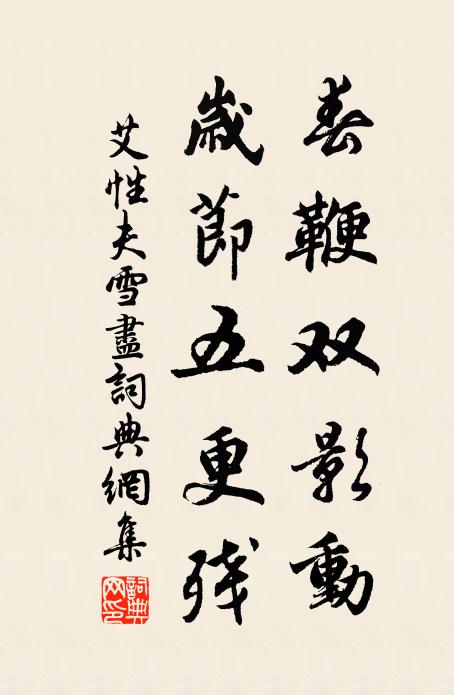 春鞭双影動
歲節五更残
艾性夫雪盡詞典網集
詞典网印